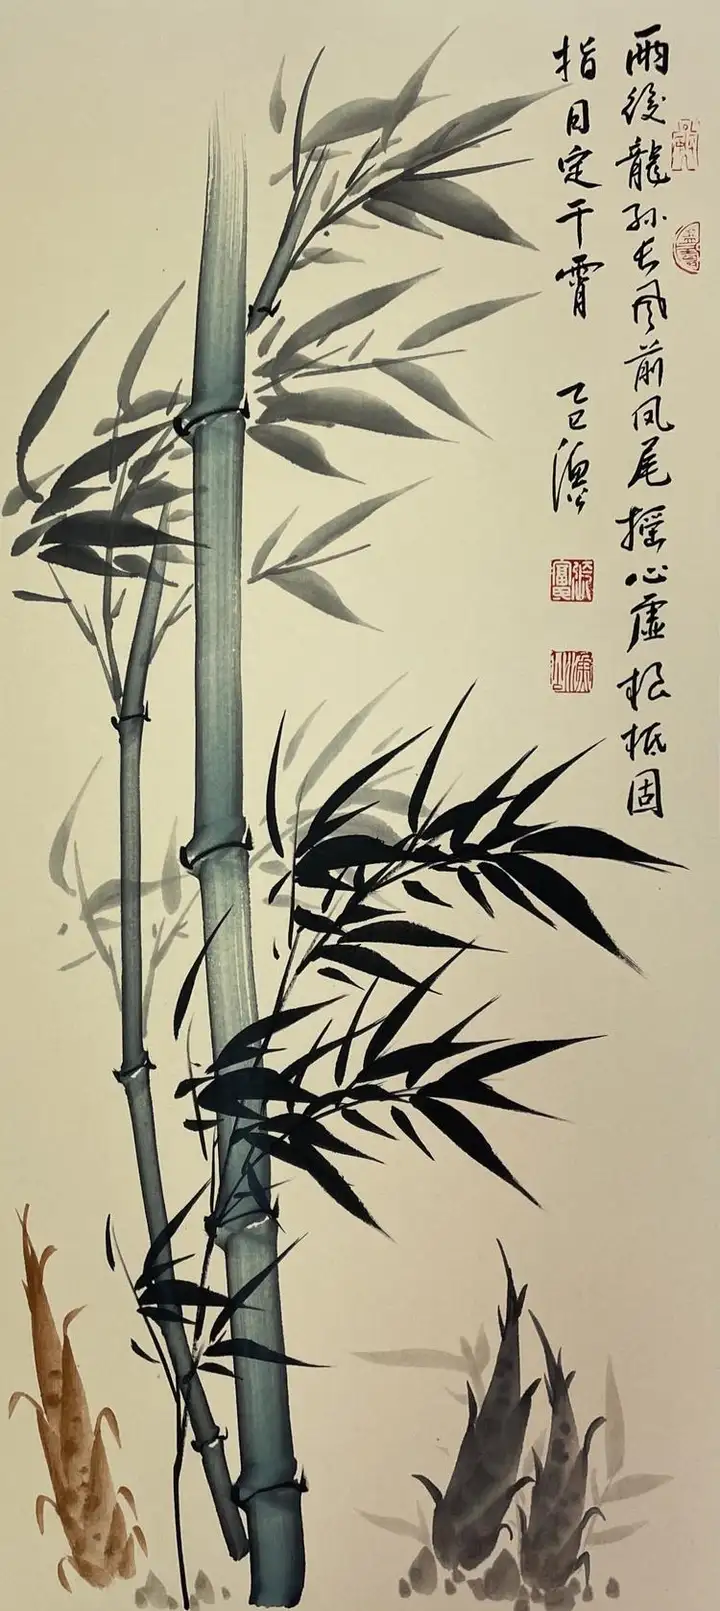 雨後龍孙长风前凤尾摇心虚根柢固
指日定干霄 乙巳